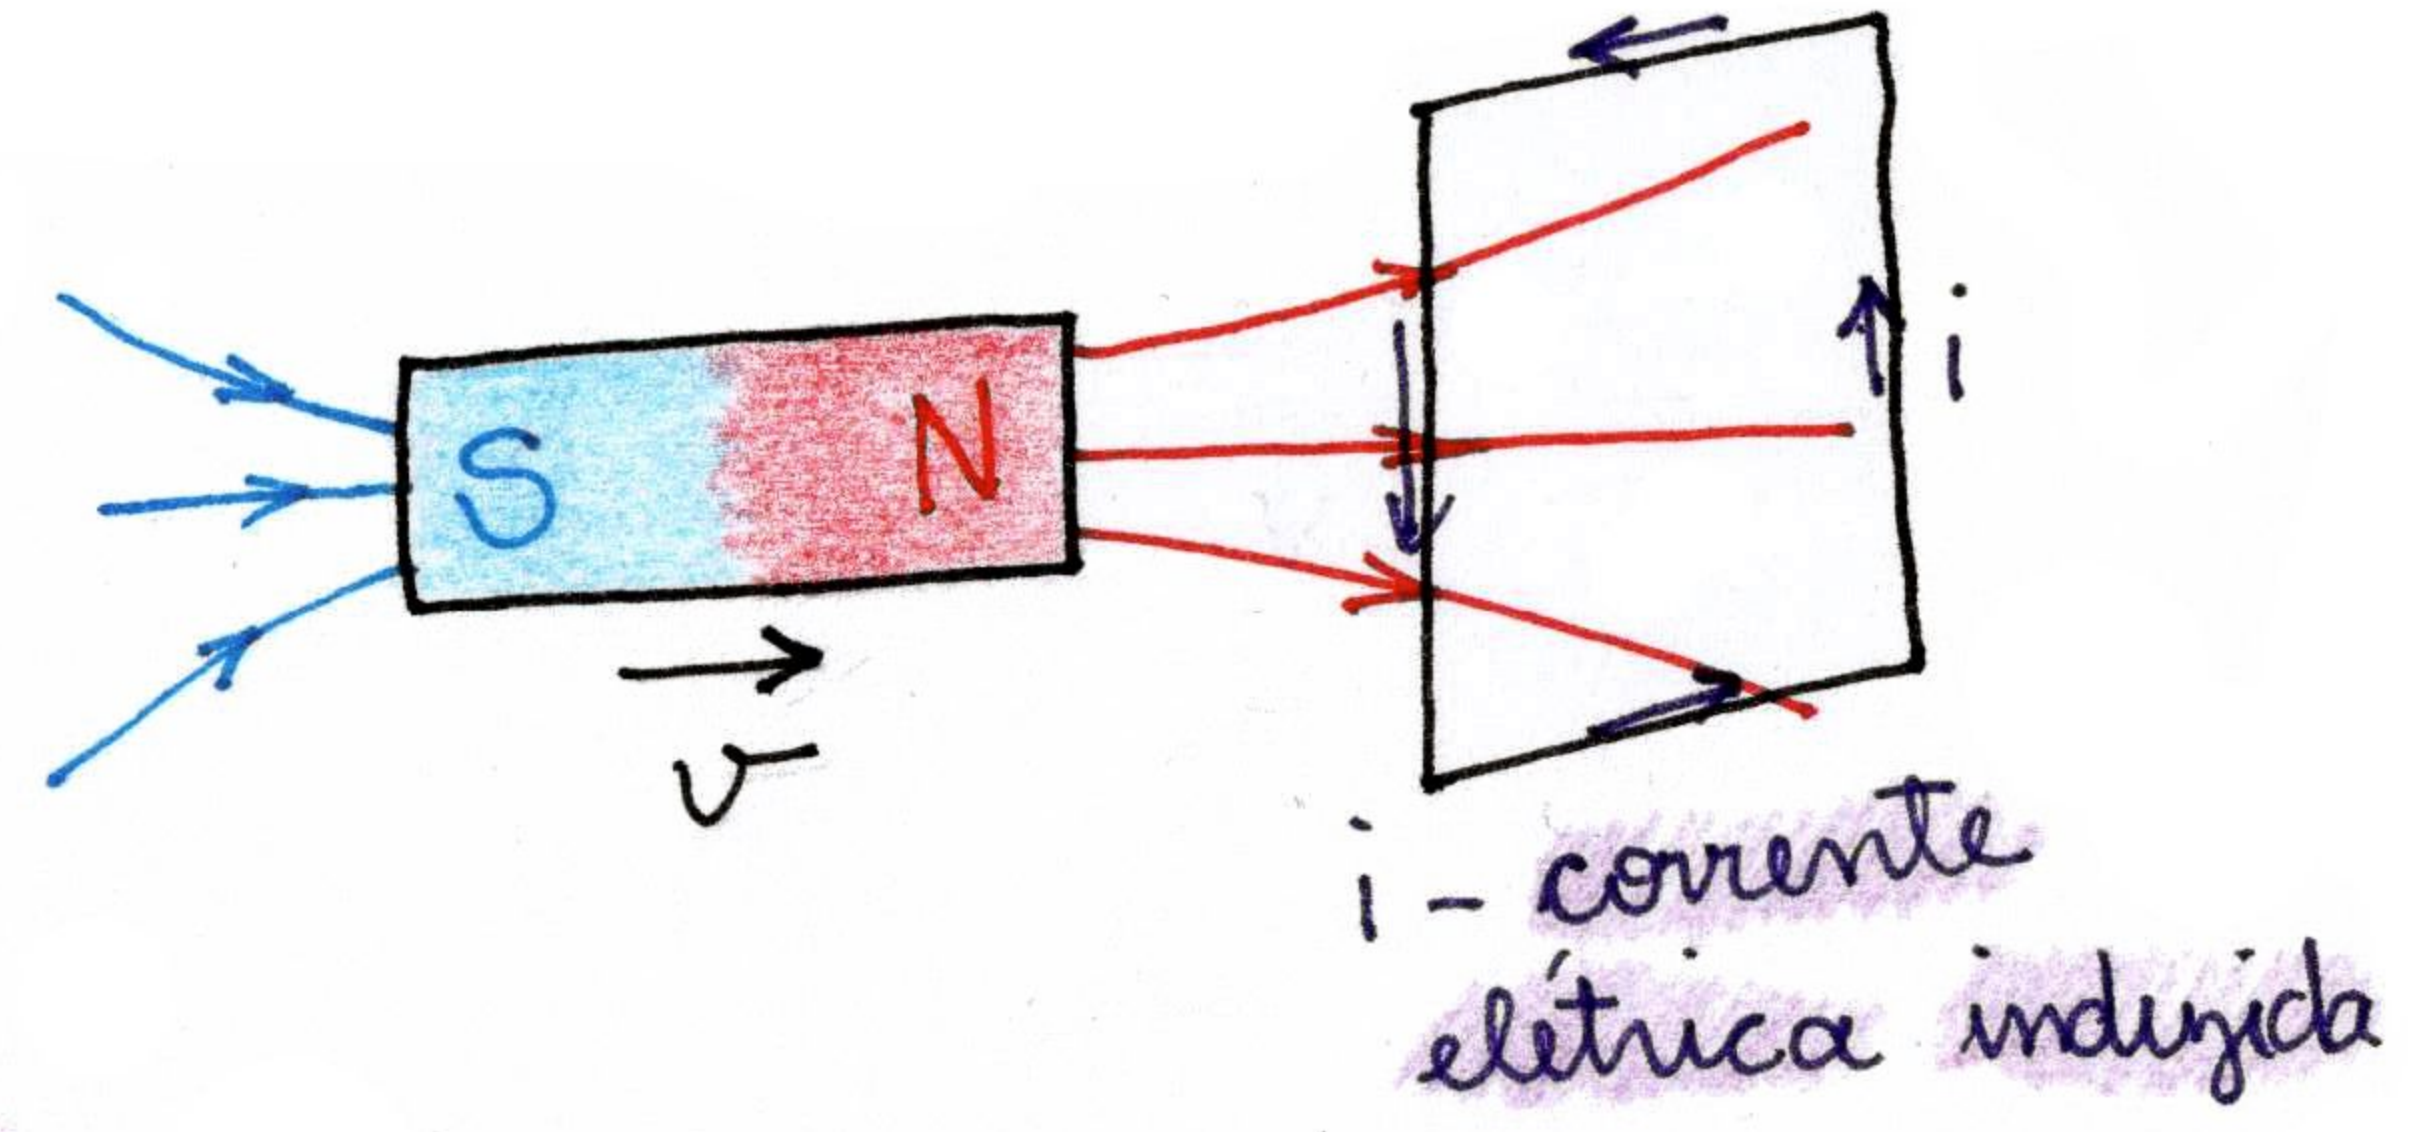 S N
i
v
i - corrente
elétrica induzida